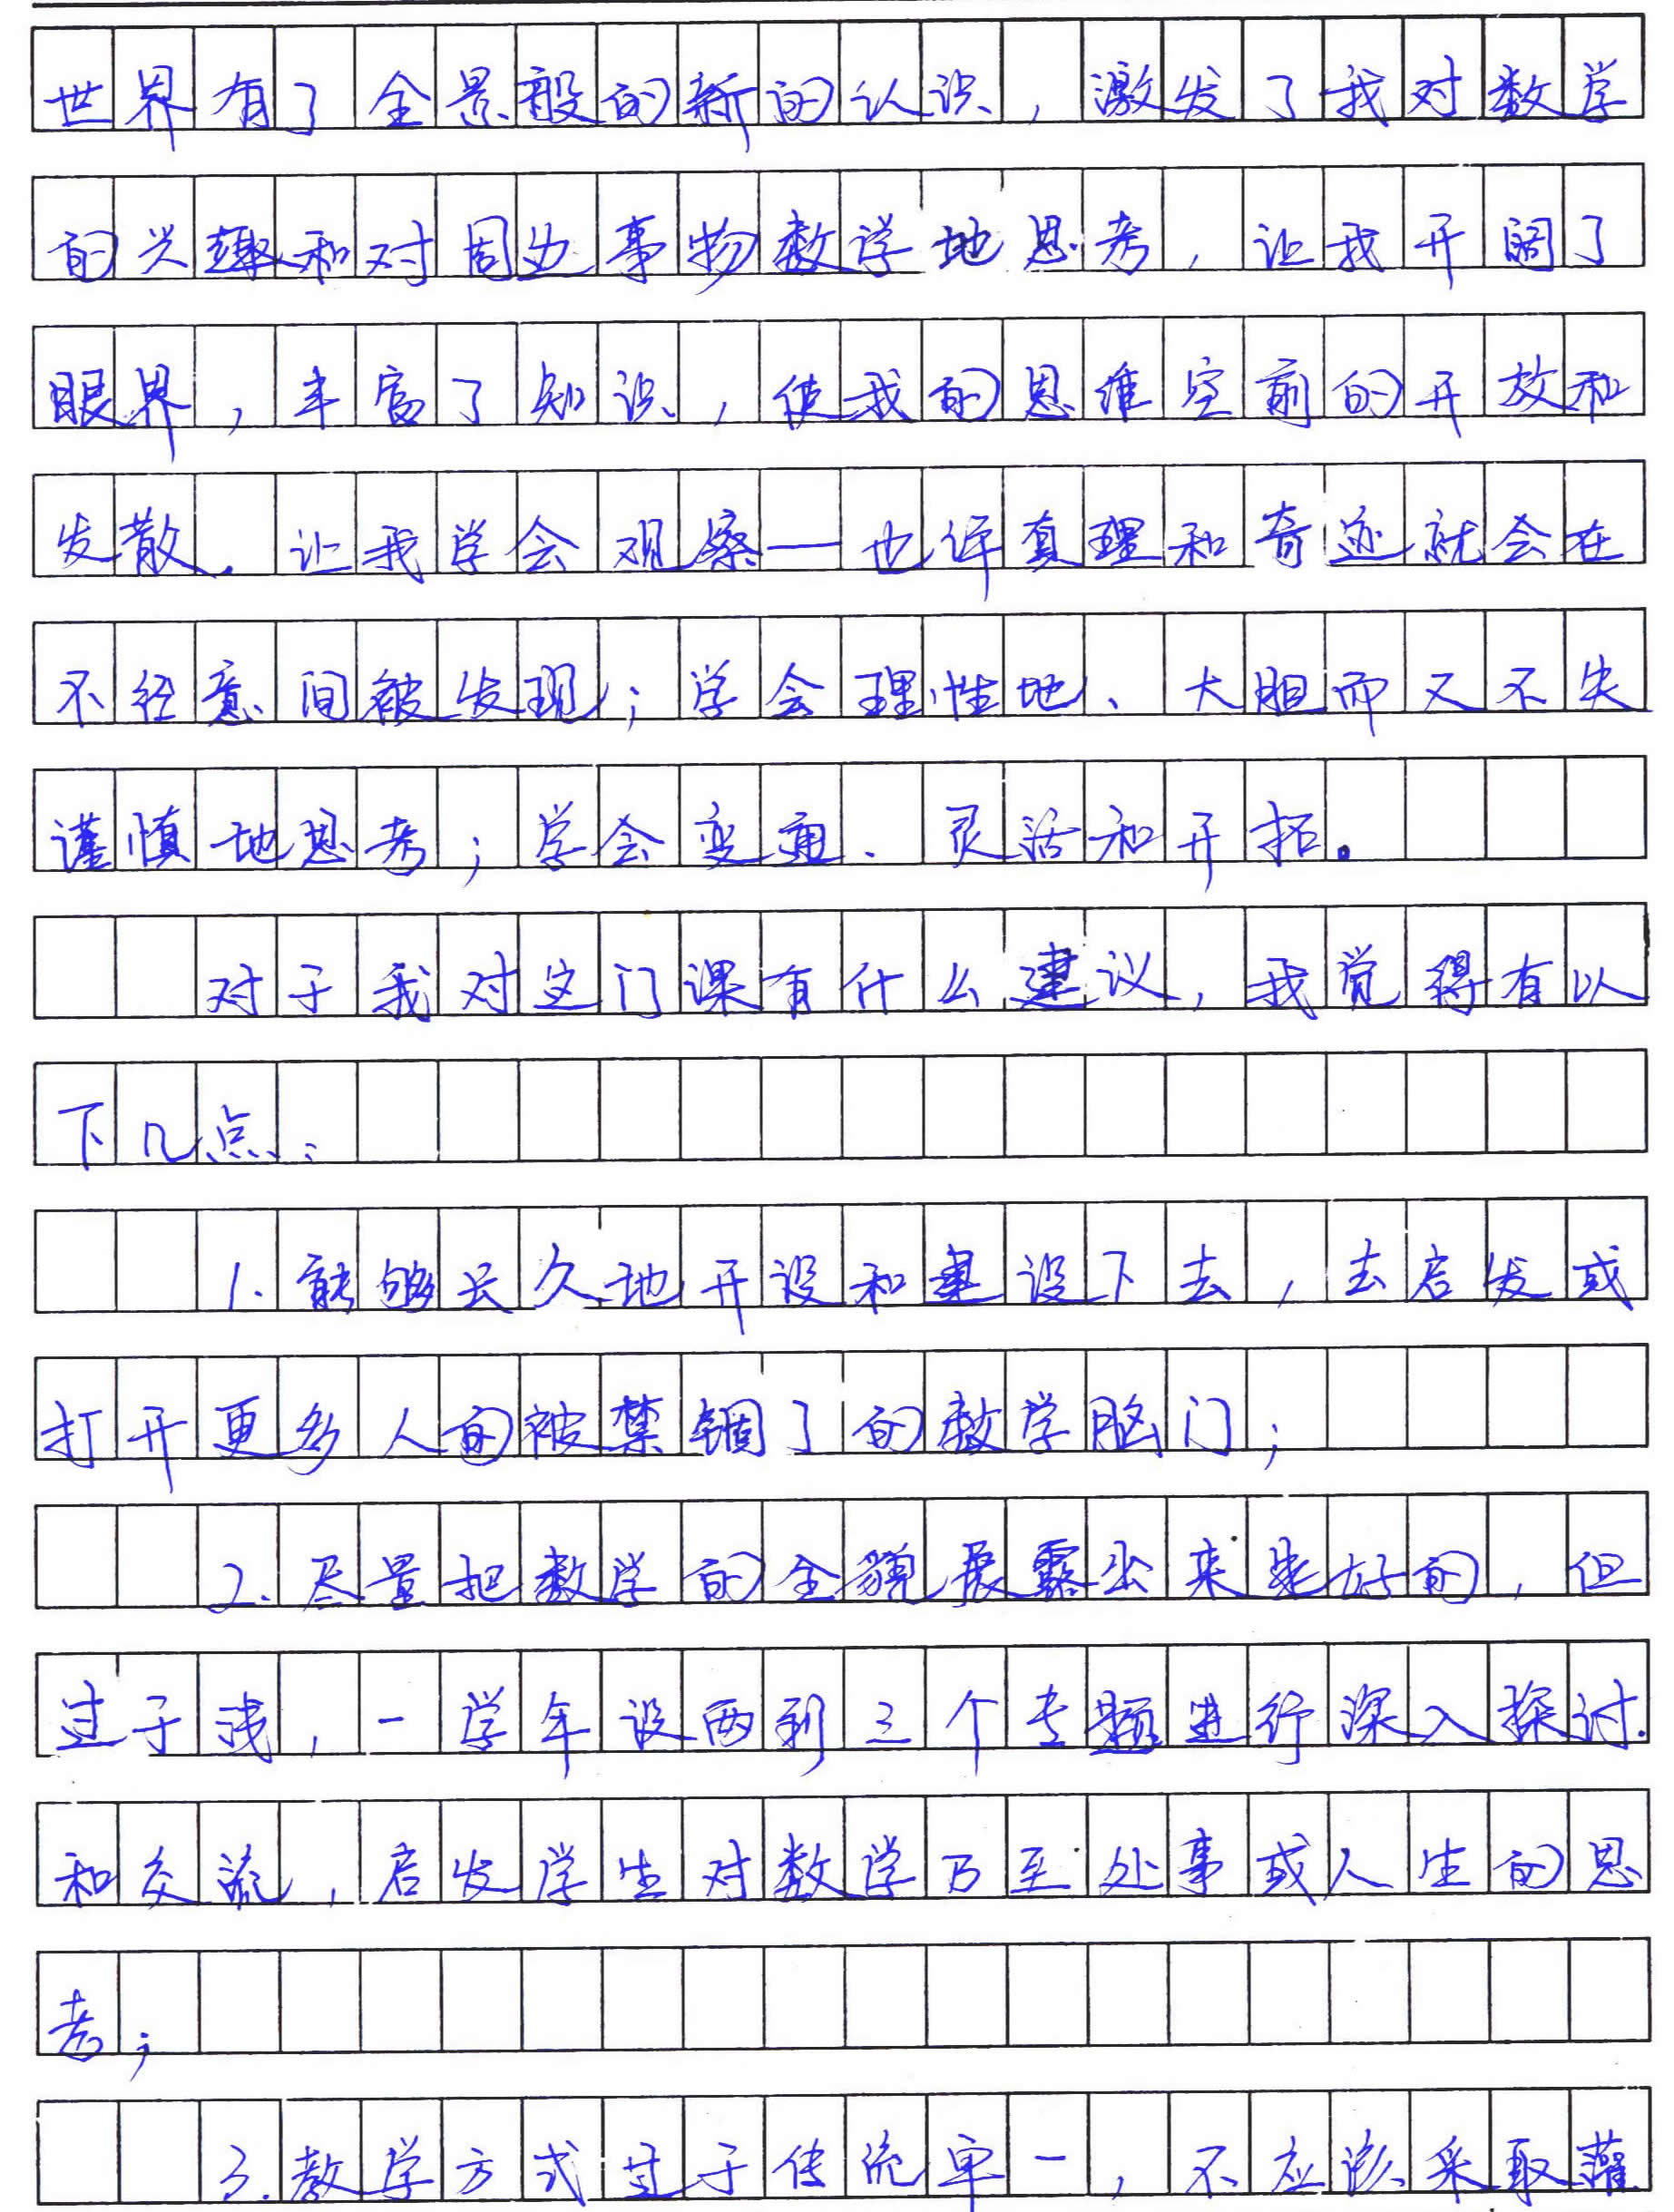 世界有了全景般的新的认识，激发了我对数学
的兴趣和对周边事物数学地思考，让我开阔了
眼界，丰富了知识，使我的思维空前的开放和
发散。让我学会观察—也许真理和奇迹就会在
不经意间被发现；学会理性地、大胆而又不失
谨慎地思考；学会变通、灵活和开拓。
对于我对这门课有什么建议，我觉得有以
下几点：
1.能够长久地开设和建设下去，去启发或
打开更多人的被禁锢了的数学脑门；
2.尽量把数学的全貌展露出来是好的，但
过于浅，一学年设两到三个专题进行深入探讨
和交流，启发学生对数学乃至处事或人生的思
考；
3.教学方式过于传统单一，不应该采取灌